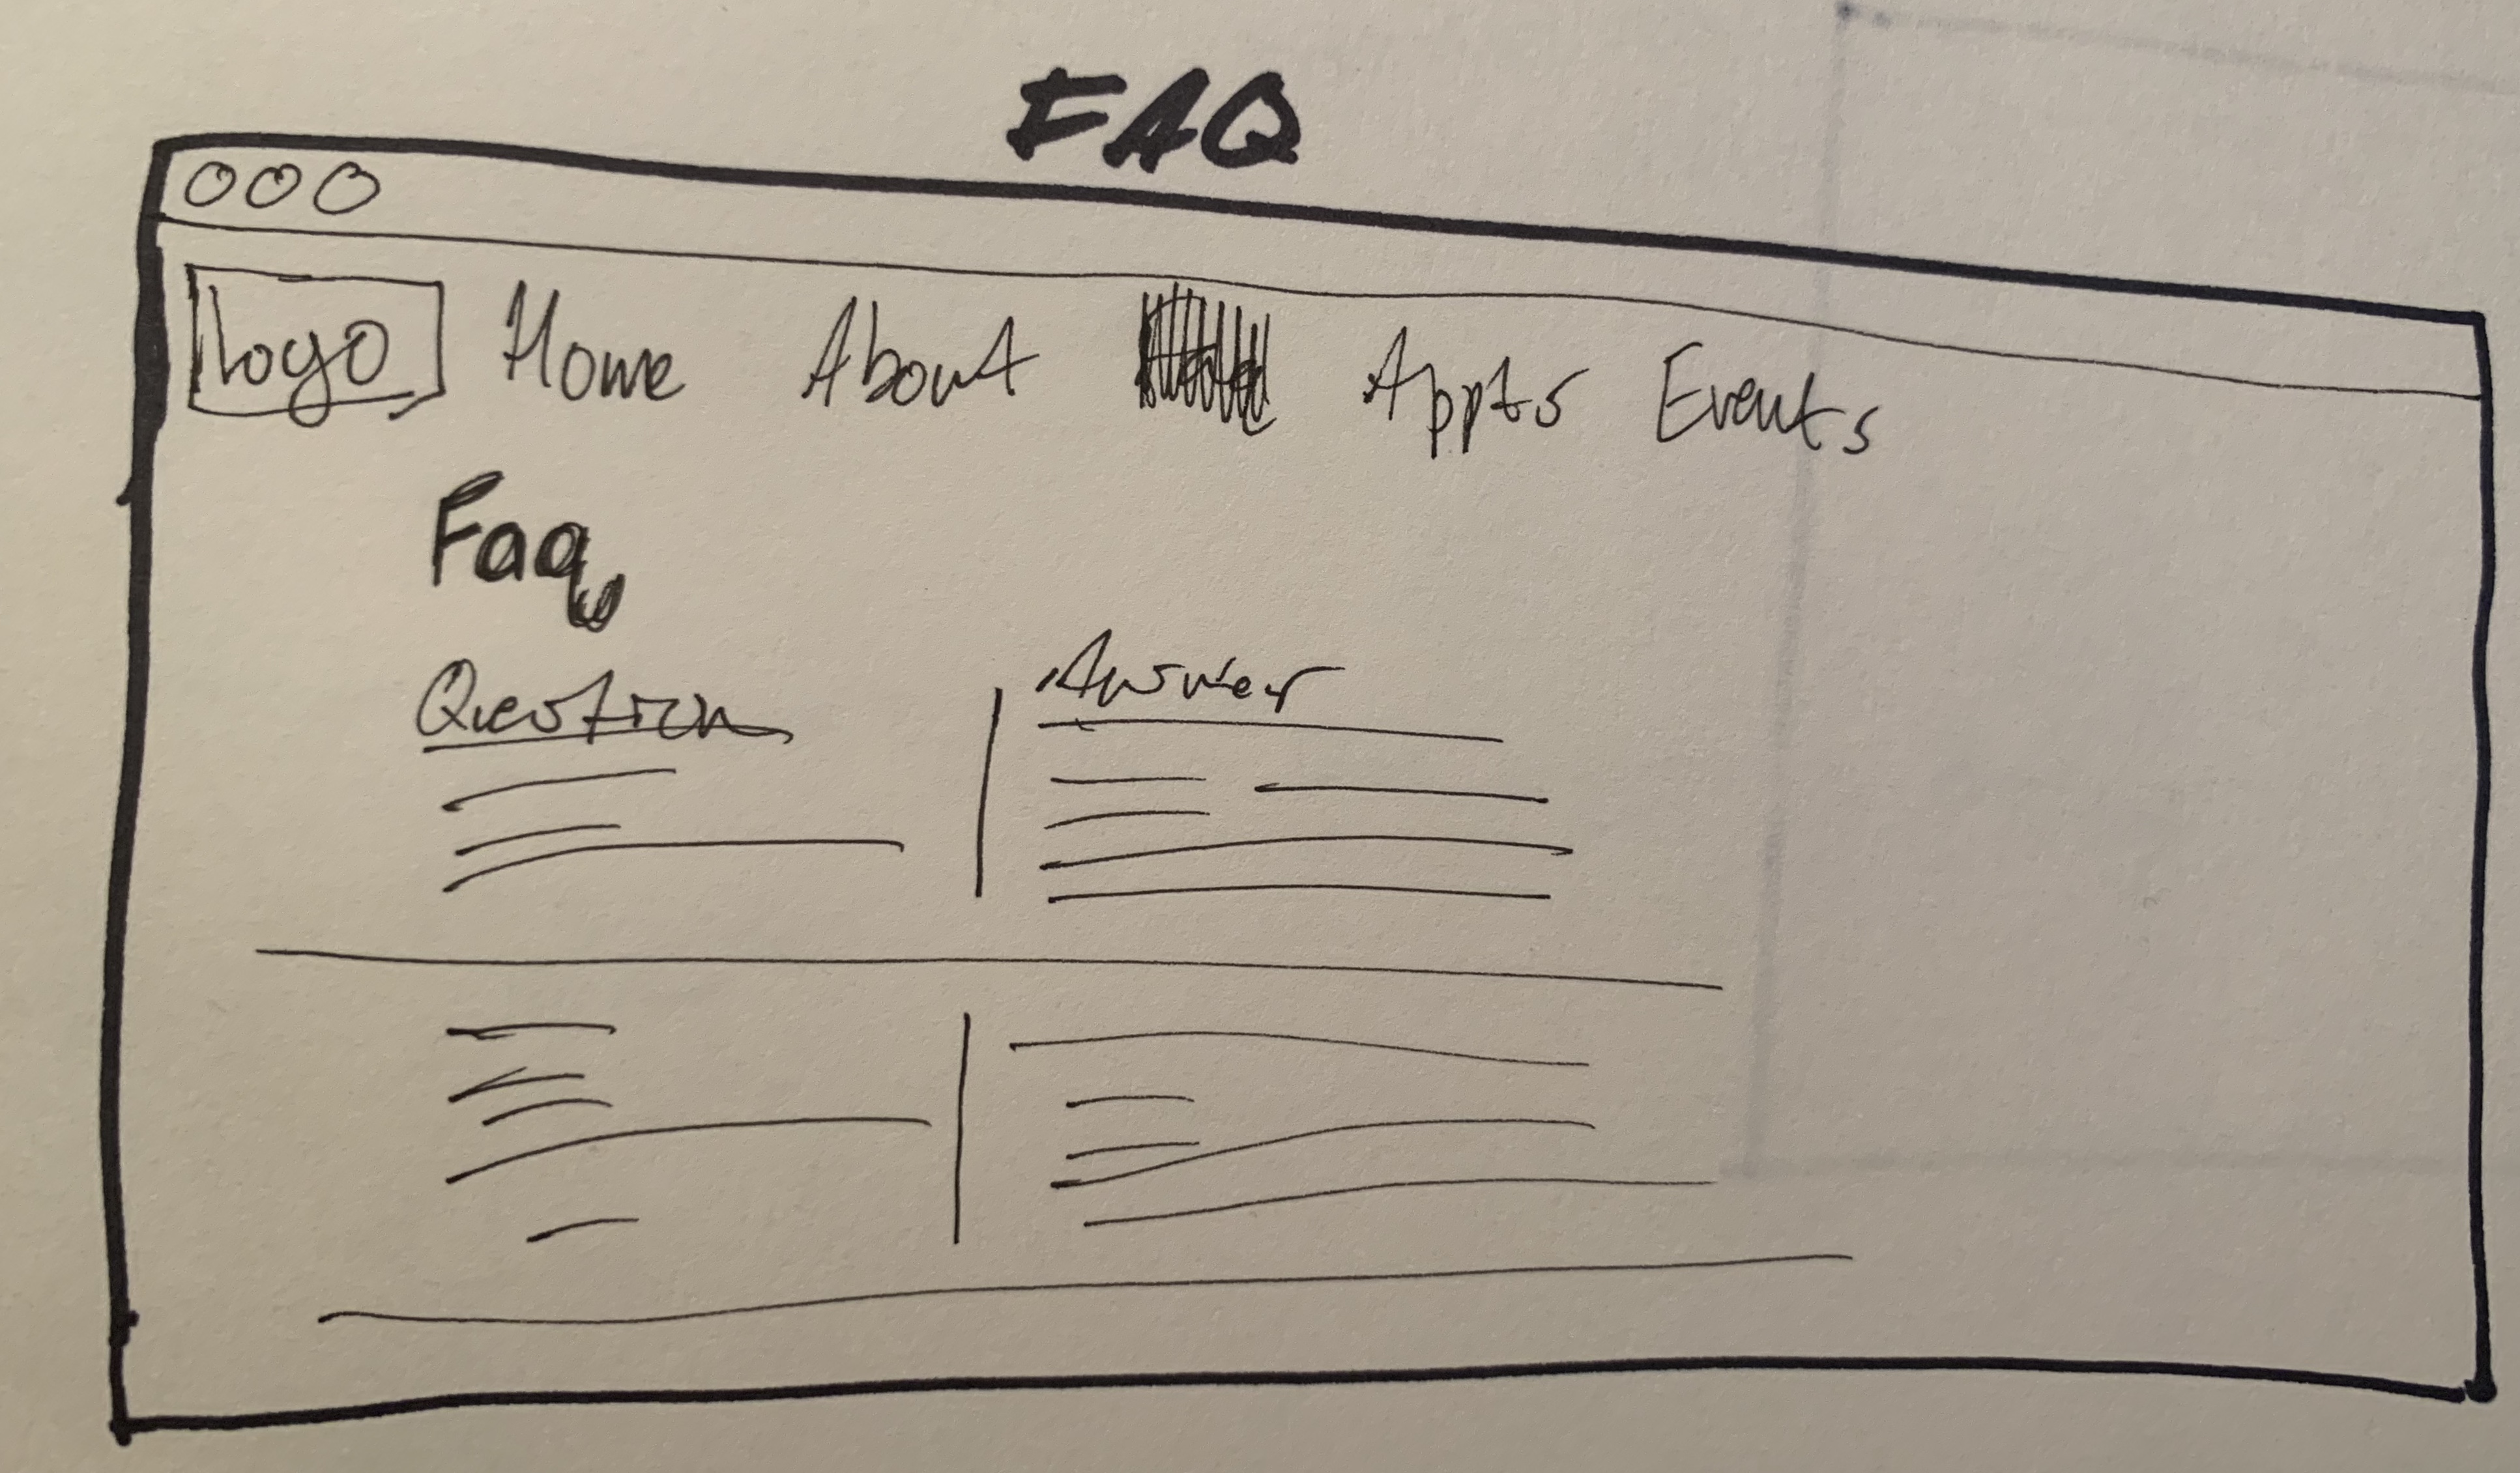 FAQ
Logo Home About Appts Events
Faq
Question Answer